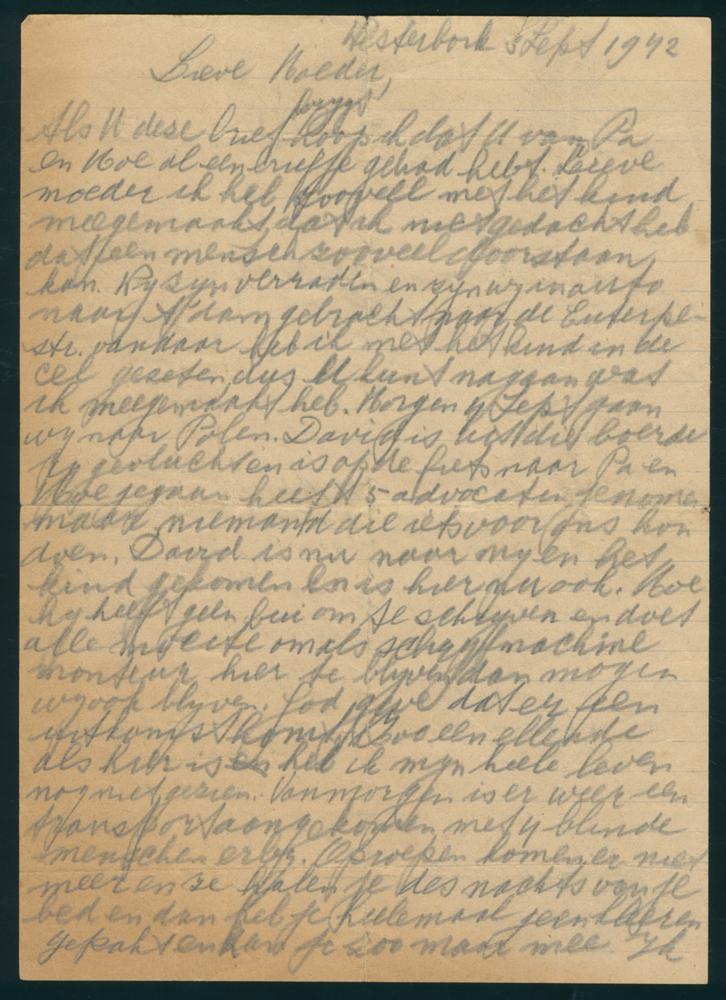 Westerbork 3 Sept 1942
Lieve Moeder,
krygt
Als U deze brief hoop ik dat U van Pa
en Moe al een briefje gehad hebt. Lieve
moeder ik heb zooveel met het kind
meegemaakt dat ik niet gedacht heb
dat een mensch zooveel doorstaan
kan. Wy zyn verraden en zyn wy in auto
naar A'dam gebracht naar de Euterpe-
str. vandaar heb ik met het kind in de
cel gezeten dus U kunt nagaan wat
ik meegemaakt heb. Morgen 4 Sept gaan
wy naar Polen. David is uit die boerde
ry gevlucht en is op de fiets naar Pa en
Moe gegaan heeft 5 advocaten genomen
maar niemand die iets voor ons kon
doen. David is nu naar my en het
kind gekomen en is hier nu ook. Moe
hy heeft geen bui om te schryven en doet
alle moeite om als schryfmachine
monteur hier te blyven dan mogen
wy ook blyven. God geve dat er een
uitkomst komt. Zoo een ellende
als hier is en heb ik myn heele leven
nog niet gezien. Vanmorgen is er weer een
transport aangekomen met 4 blinde
menschen erby. Oproepen komen er niet
meer en ze halen je des nachts van je
bed en dan heb je heelemaal geen kleeren
gepakt en kan je zoo maar mee. Ik